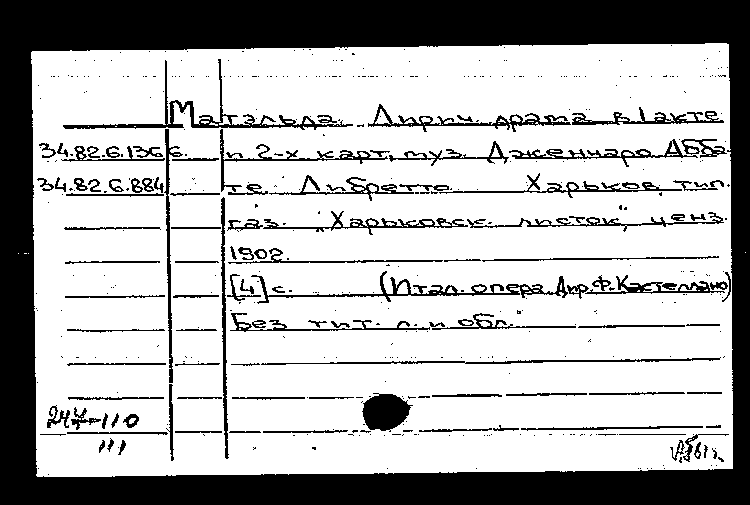 Матэльда. Лирич. драма в 1 акте
34.82.6.1366. и 2-х карт, муз. Дженнаро Абба-
34.82.6.884 те. Либретто. Харьков, тип.
газ. "Харьковск. листок", ценз.
1902.
[4] с. (Итал. опера. Дир. Ф. Кастеллано)
Без тит. л. и обл.
247-110
111